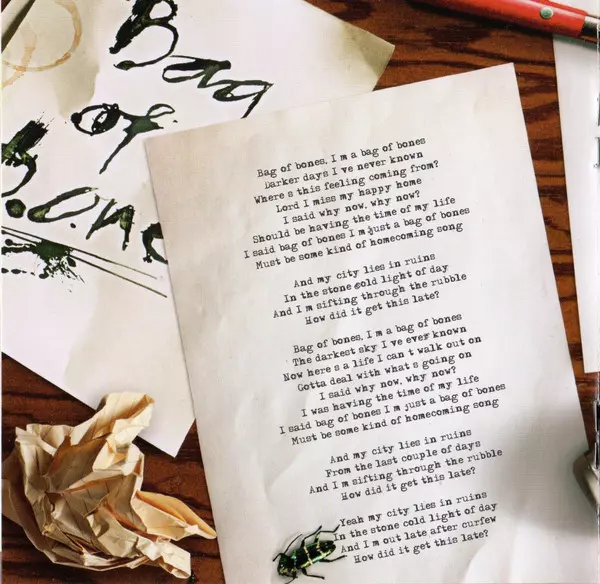 Bag
of
Bones
Bag of bones, I m a bag of bones
Darker days I ve never known
Where s this feeling coming from?
Lord I miss my happy home
I said why now, why now?
Should be having the time of my life
I said bag of bones I m just a bag of bones
Must be some kind of homecoming song
And my city lies in ruins
In the stone cold light of day
And I m sifting through the rubble
How did it get this late?
Bag of bones, I m a bag of bones
The darkest sky I ve ever known
Now here s a life I can t walk out on
Gotta deal with what s going on
I said why now, why now?
I was having the time of my life
I said bag of bones I m just a bag of bones
Must be some kind of homecoming song
And my city lies in ruins
From the last couple of days
And I m sifting through the rubble
How did it get this late?
Yeah my city lies in ruins
In the stone cold light of day
And I m out late after curfew
How did it get this late?